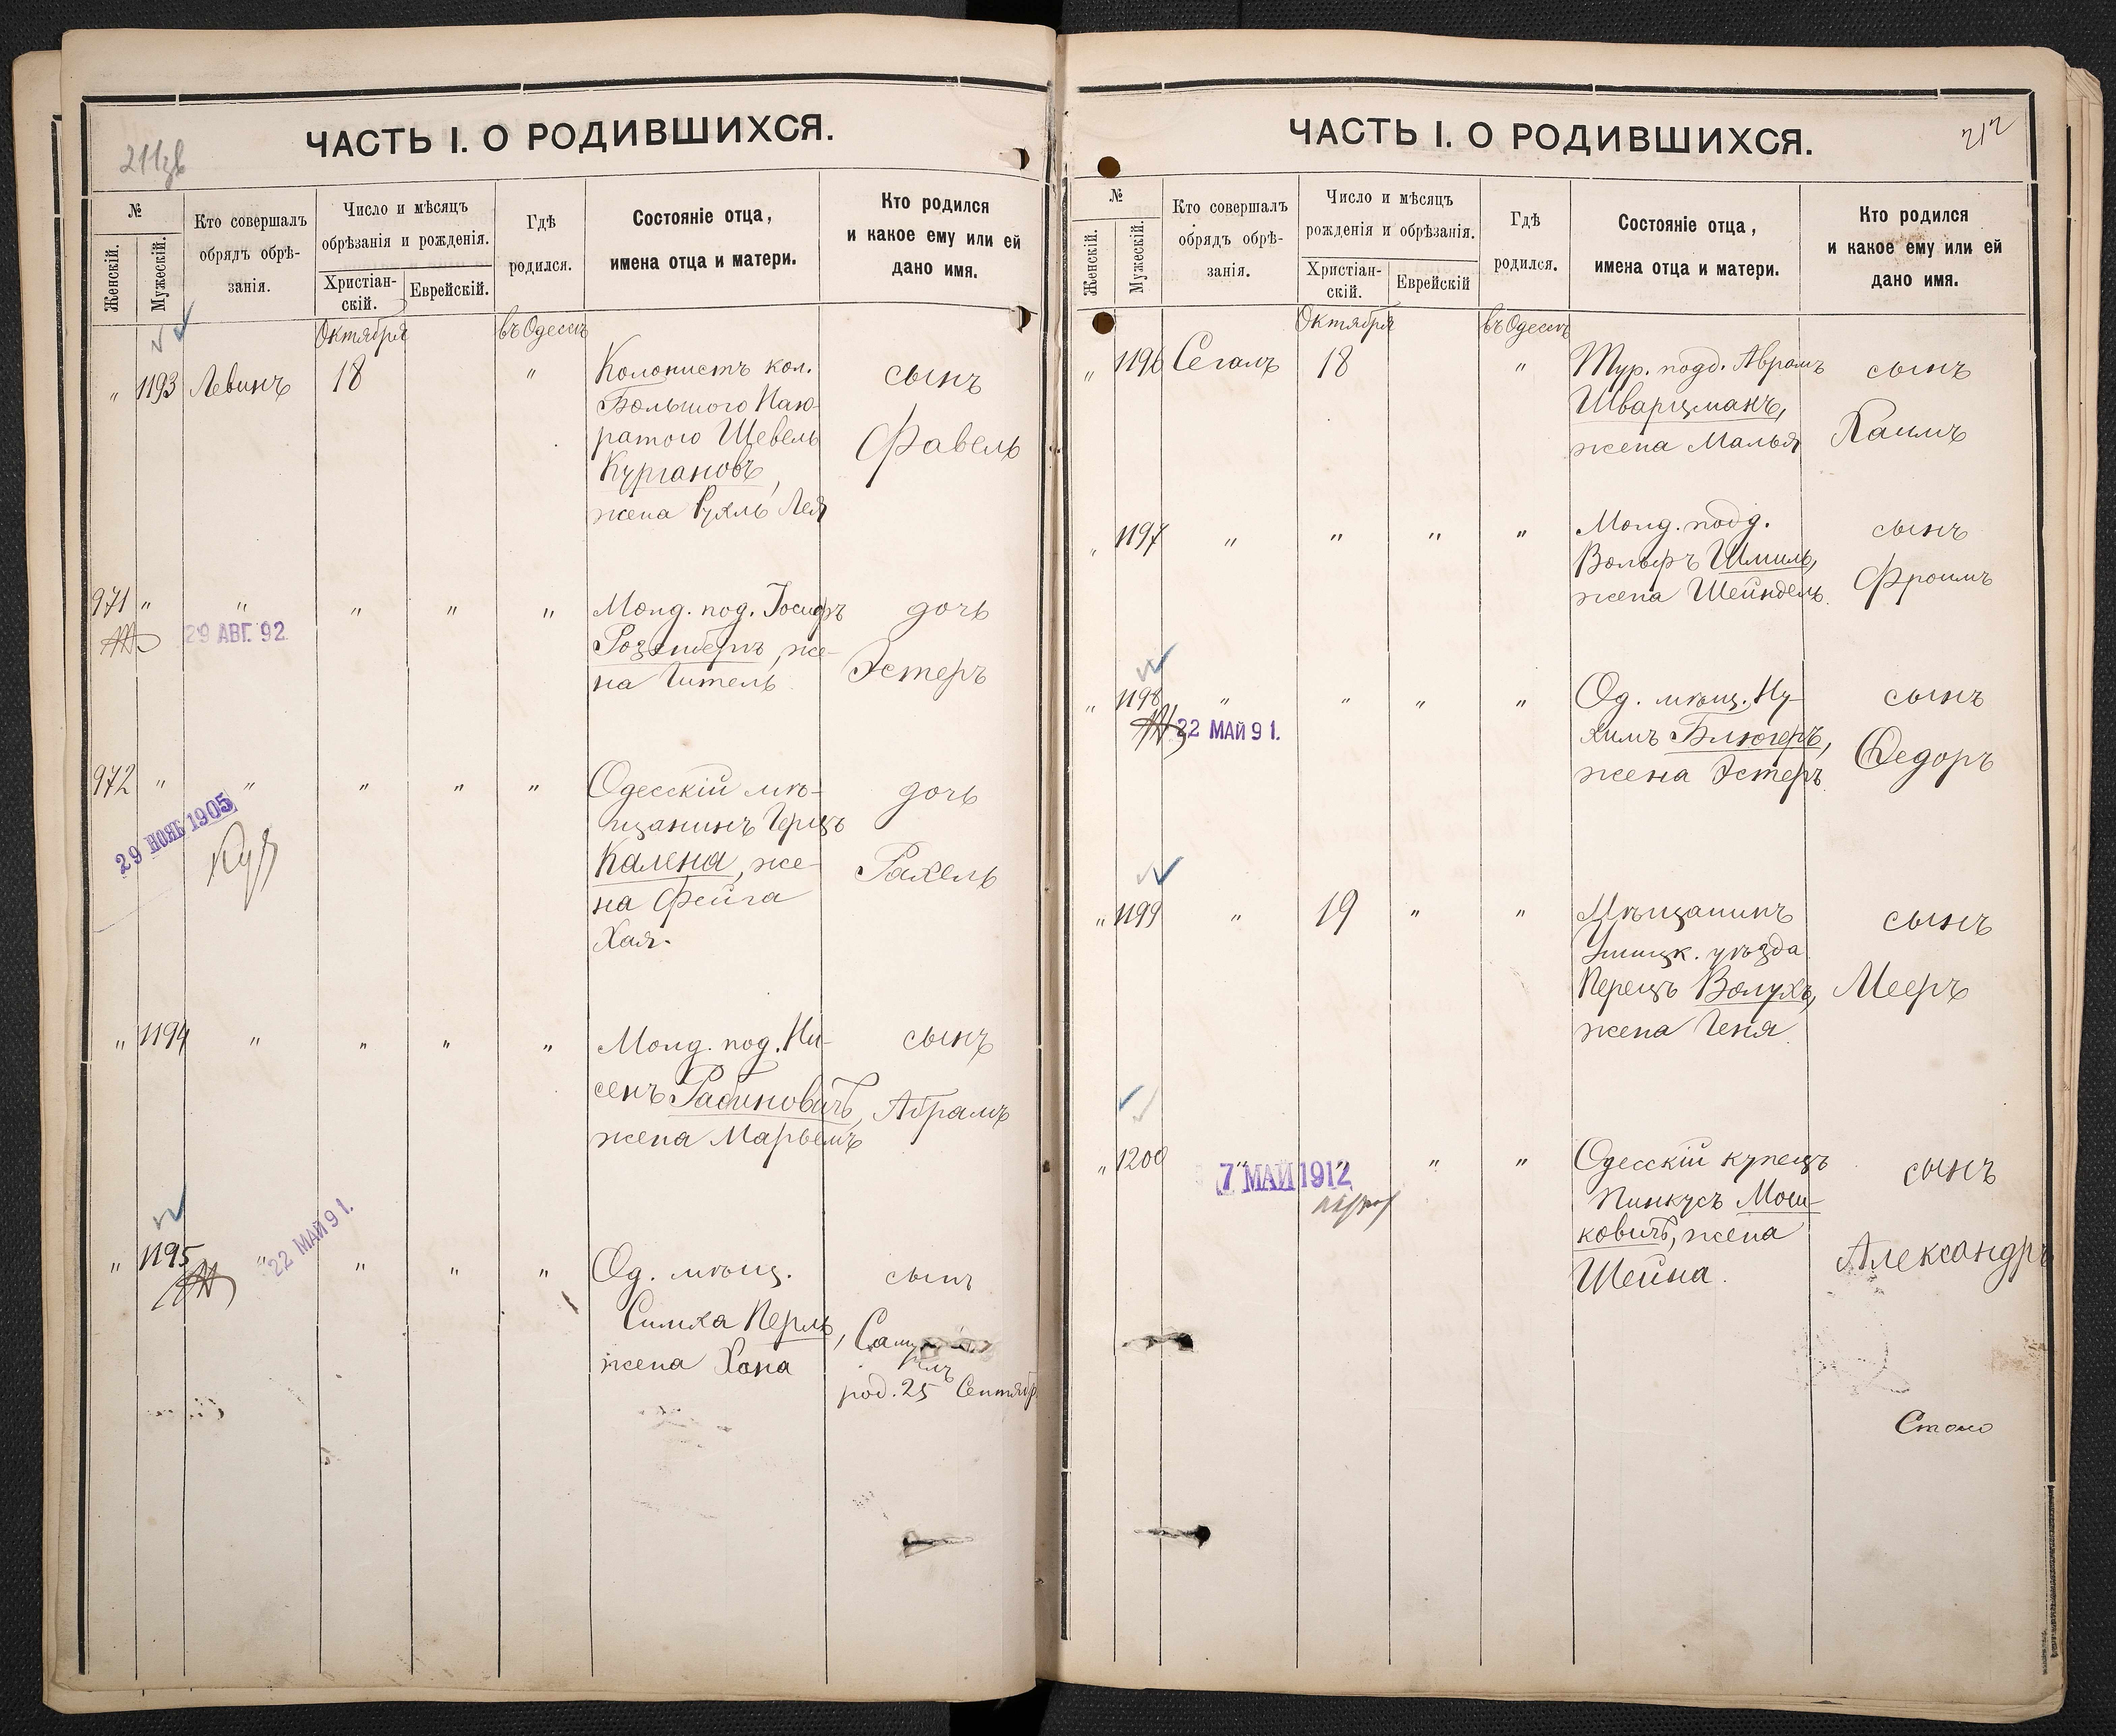 ЧАСТЬ I. О РОДИВШИХСЯ.
№
Женскій.
Мужескій.
Кто совершалъ
обрядъ обрѣ-
занія.
Число и мѣсяцъ
обрѣзанія и рожденія.
Христіан-
скій.
Еврейскій.
Гдѣ
родился.
Состояніе отца,
имена отца и матери.
Кто родился
и какое ему или ей
дано имя.
Октября
въ Одессѣ
" 1193 Левинъ 18 " Колонистъ кол. сынъ
Большого Наю-
ратого Шевель Фавель
Кургановъ,
жена Рухль Лея
971 " " " " " Молд. под. Іосифъ дочь
29 АВГ. 92
Розенбергъ, же- Эстеръ
на Гитель
972 " " " " " Одесскій мѣ- дочь
29 НОЯБ 1905
щанинъ Герцъ
Калена, же- Рахель
на Фейга
Хая.
" 1194 " " " " Молд. под. Ни- сынъ
сенъ Рабиновичъ, Абрамъ
жена Марьемъ
" 1195 " " " " Од. мѣщ. сынъ
22 МАЙ 91.
Симха Перль,
жена Хана
род. 25 Сентябр.
ЧАСТЬ I. О РОДИВШИХСЯ.
212
№
Женскій.
Мужескій.
Кто совершалъ
обрядъ обрѣ-
занія.
Число и мѣсяцъ
рожденія и обрѣзанія.
Христіан-
скій.
Еврейскій
Гдѣ
родился.
Состояніе отца,
имена отца и матери.
Кто родился
и какое ему или ей
дано имя.
Октября
въ Одессѣ
" 1196 Сегалъ 18 " Тур. подд. Абрамъ сынъ
Шварцманъ,
жена Малья Хаимъ
" 1197 " " " " Молд. подд. сынъ
Вольфъ Шмиль,
жена Шейндель. Фроимъ
" 1198 " " " " Од. мѣщ. Ну- сынъ
22 МАЙ 91.
химъ Блюгеръ,
жена Эстеръ. Федоръ
" 1199 " 19 " " Мѣщанинъ сынъ
Ушицк. уѣзда
Перецъ Волухъ, Мееръ
жена Геня
" 1200 " " " " Одесскій купецъ сынъ
7 МАЙ 1912
Пинкусъ Мош-
ковичъ, жена
Шейна. Александръ